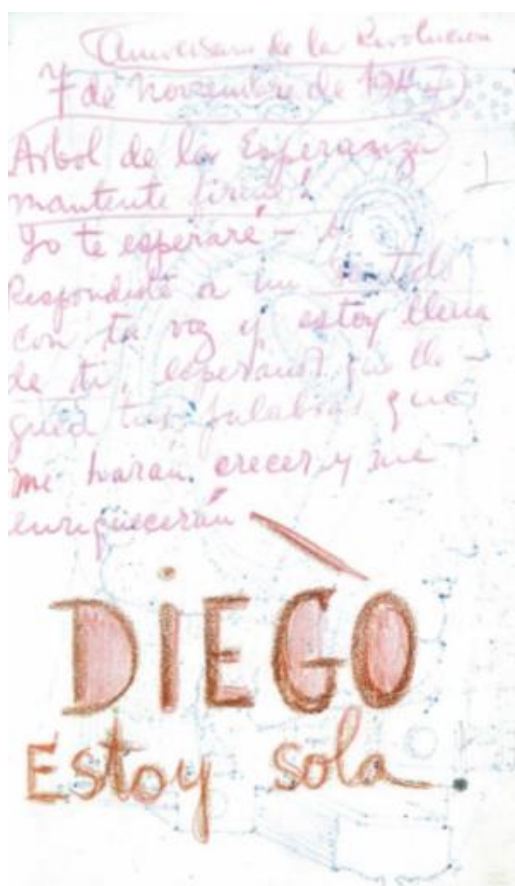 Aniversario de la Revolucion
7 de Noviembre de 1947
Arbol de la Esperanza
mantente firme!
Yo te esperaré –
Respondiste a un sentido
con tu voz y estoy llena
de ti, esperando que lle-
guen tus palabras que
me harán crecer y me
enriquecerán
DiEGO
Estoy sola